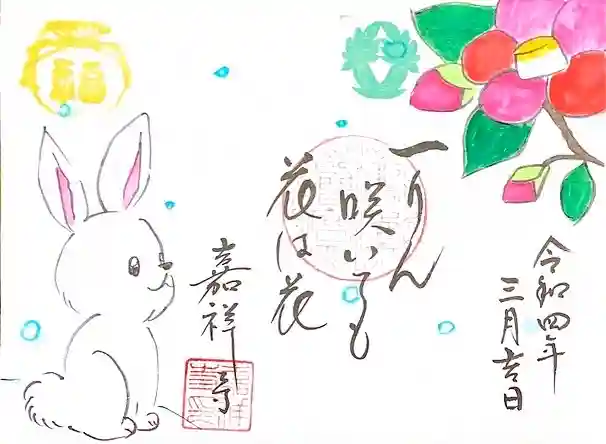 令和四年
三月吉日
一りん
咲いても
花は花
嘉祥寺